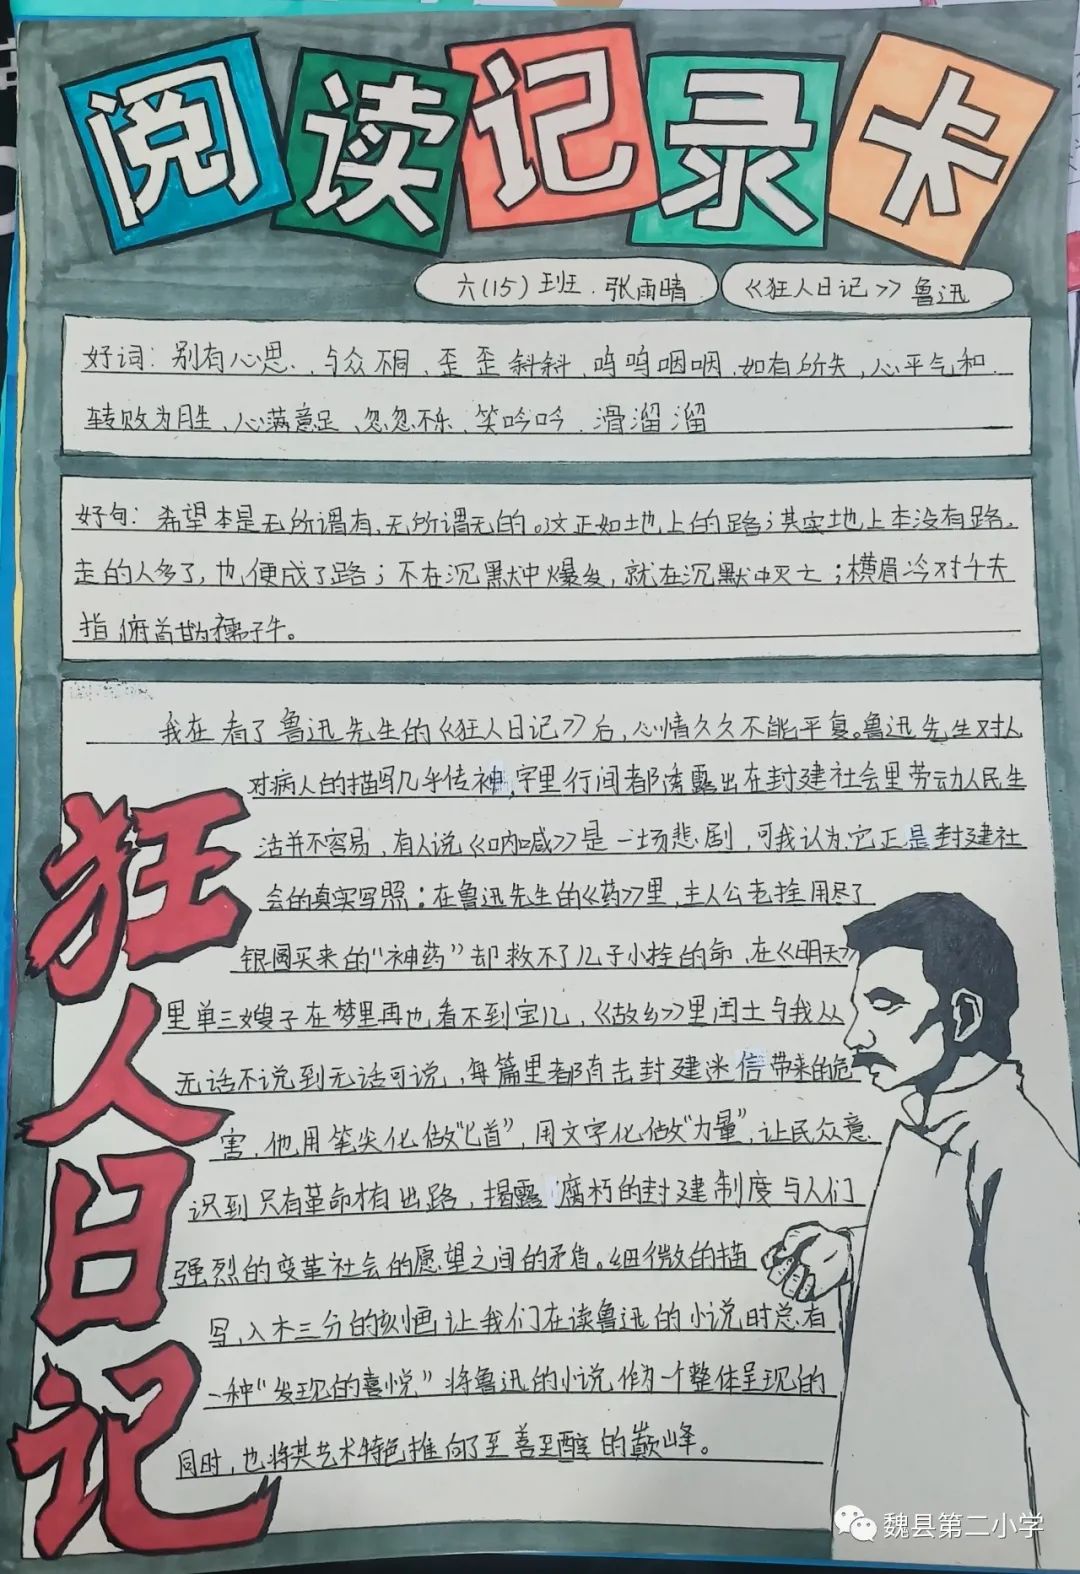 阅读记录卡
六(15)班.张雨晴
《狂人日记》鲁迅
好词:别有心思、与众不同、歪歪斜斜、呜呜咽咽、如有所失、心平气和、
转败为胜、心满意足、忽忽不乐、笑吟吟、滑溜溜
好句:希望本是无所谓有,无所谓无的。这正如地上的路;其实地上本没有路,
走的人多了,也便成了路;不在沉默中爆发,就在沉默中灭亡;横眉冷对千夫
指俯首甘为孺子牛。
我在看了鲁迅先生的《狂人日记》后,心情久久不能平复。鲁迅先生对人
对病人的描写几乎传神,字里行间都透露出在封建社会里劳动人民生
活并不容易,有人说《呐喊》是一场悲剧,可我认为它正是封建社
会的真实写照:在鲁迅先生的《药》里,主人公老拴用尽了
银圆买来的"神药"却救不了儿子小栓的命,在《明天》
里单三嫂子在梦里再也看不到宝儿,《故乡》里闰土与我从
无话不说到无话可说,每篇里都有击封建迷信带来的危
害,他用笔尖化做"匕首",用文字化做"力量",让民众意
识到只有革命才有出路,揭露腐朽的封建制度与人们
强烈的变革社会的愿望之间的矛盾。细微的描
写,入木三分的刻画让我们在读鲁迅的小说时总有
一种"发现的喜悦"将鲁迅的小说作为一个整体呈现的
同时,也将其艺术特色推向了至善至醇的巅峰。
狂人日记
魏县第二小学